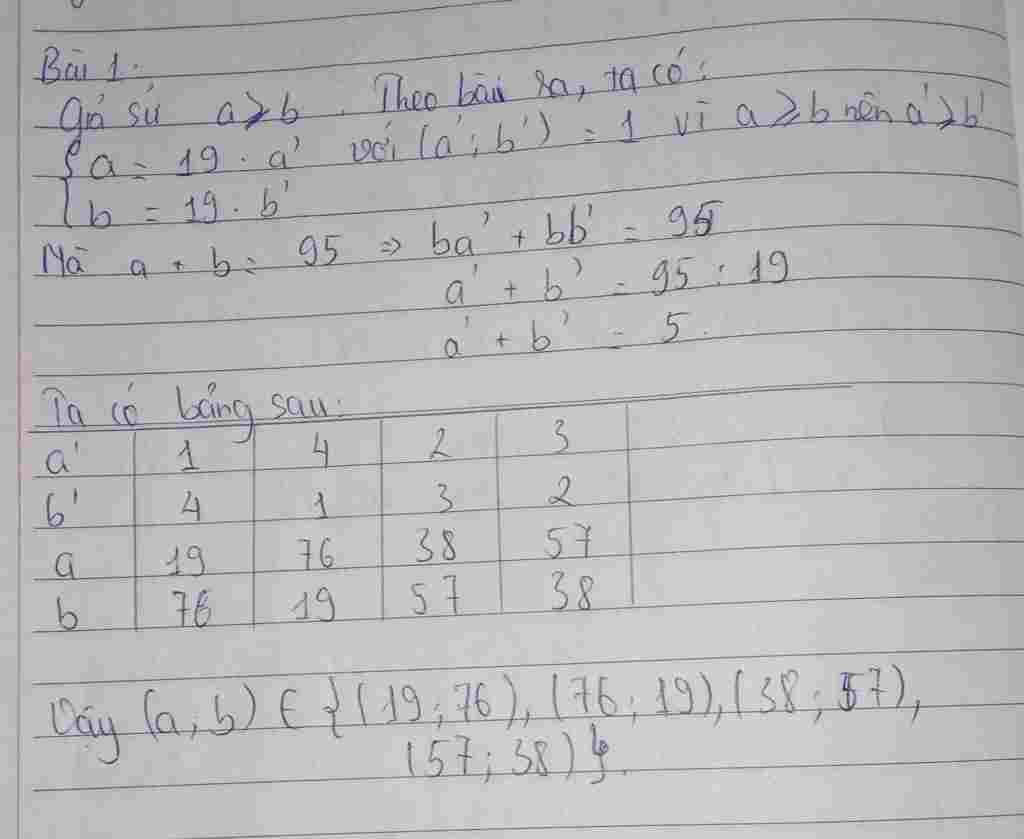 Bài 1:
Giả sử a ≥ b. Theo bài ra, ta có:
{ a = 19 . a' với (a'; b') = 1 vì a ≥ b nên a' ≥ b'
{ b = 19 . b'
Mà a + b = 95 => ba' + bb' = 95
a' + b' = 95 : 19
a' + b' = 5.
Ta có bảng sau:
a' 1 4 2 3
b' 4 1 3 2
a 19 76 38 57
b 76 19 57 38
Vậy (a, b) ∈ {(19; 76), (76; 19), (38; 57),
(57; 38)}.